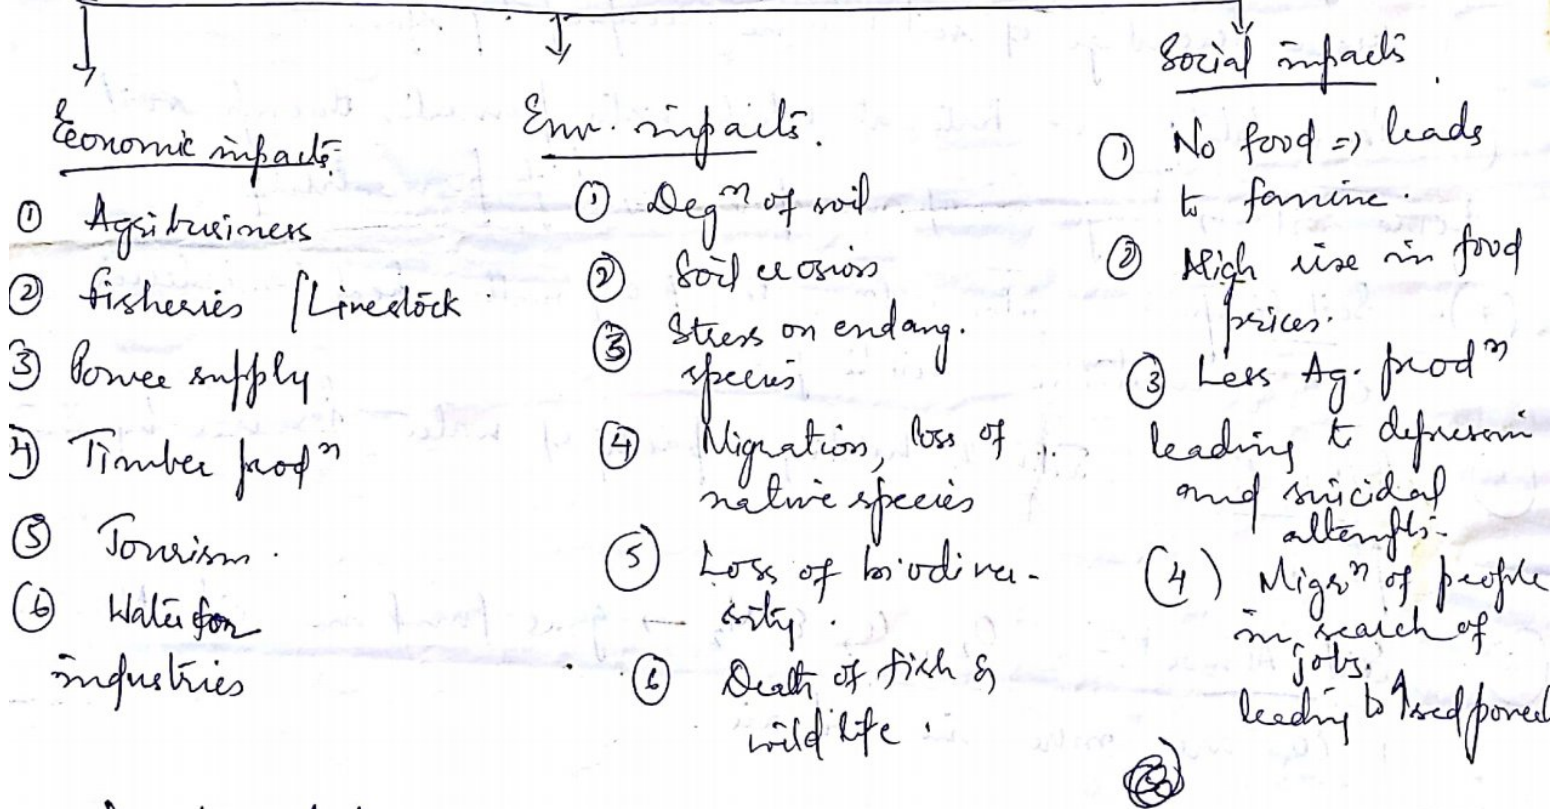 Economic impacts
① Agribusiness
② fisheries / Livestock
③ Power supply
④ Timber prodⁿ
⑤ Tourism.
⑥ Water for
industries
Env. impacts.
① Degⁿ of soil
② Soil erosion
③ Stress on endang.
species
④ Migration, loss of
native species
⑤ Loss of biodiver-
sity.
⑥ Death of fish &
wild life.
Social impacts
① No food => leads
to famine.
② High rise in food
prices.
③ Less Ag. prodⁿ
leading to depression
and suicidal
attempts.
(4) Migrⁿ of people
in search of
jobs.
leading to ↑sed